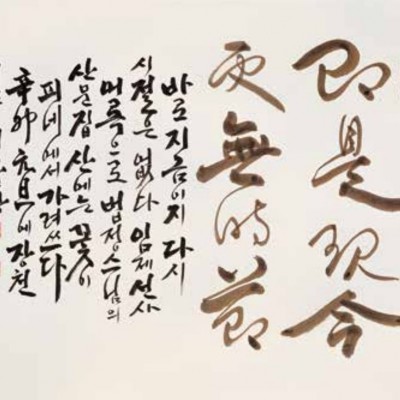 即是現今
更無時節
바로 지금이지 다시
시절은 없다 임제선사
어록으로 법정스님의
산문집 산에는 꽃이
피네에서 가려쓰다
辛卯 에 장천